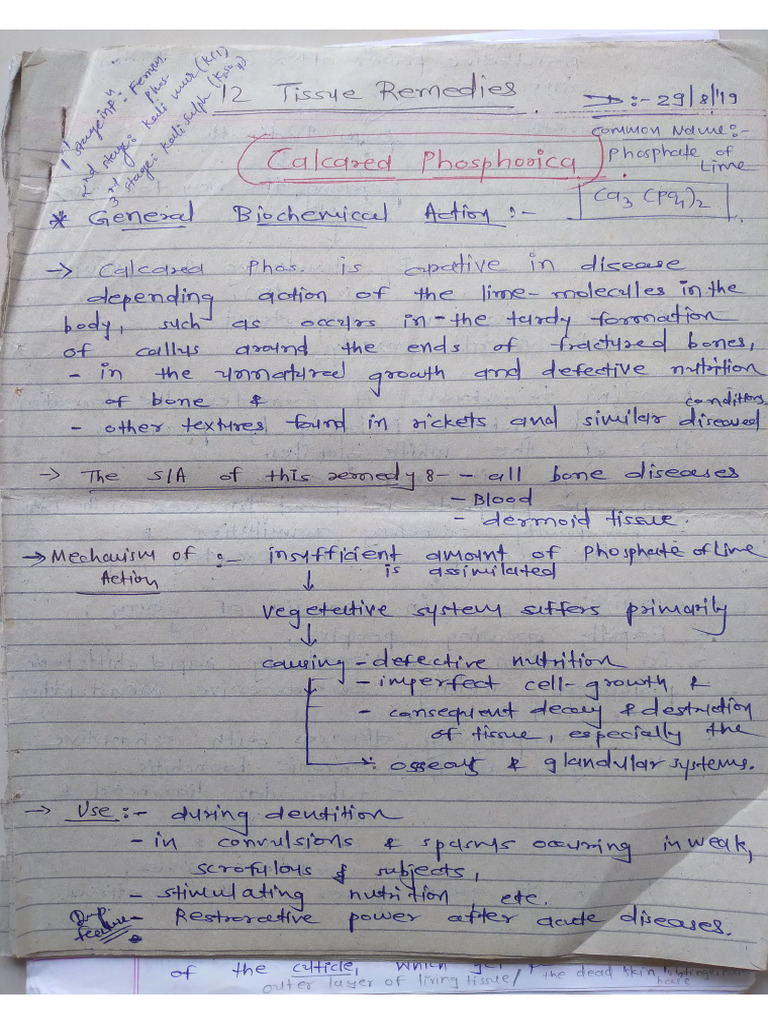 1st stage impn: Ferrum Phos.
2nd stage: Kali mur (Kcl)
3rd stage: Kali Sulph (K2SO4)
12 Tissue Remedies
:- 29/8/'19
Common Name:-
Phosphate of
Lime
Calcarea Phosphorica
Ca3 (PO4)2
* General Biochemical Action :-
→ Calcarea Phos. is opative in disease
depending action of the lime-molecules in the
body, such as occurs in-the tardy formation
of callus around the ends of fractured bones,
- in the unnatural growth and defective nutrition
of bone &
- other textures found in rickets and similar diseased conditions
→ The S/A of this remedy :- - all bone diseases
- Blood
- dermoid tissue.
→ Mechanism of :- insufficient amount of Phosphate of Lime
Action is assimilated
↓
vegetative system suffers primarily
↓
causing - defective nutrition
- imperfect cell-growth, &
- consequent decay & destruction
of tissue, especially the
→ : osseous & glandular systems.
→ Use :- during dentition
- in convulsions & spasms occuring in weak,
scrofulous & subjects,
- stimulating nutrition, etc.
Imp. feature - Restrorative power after acute diseases.
of the cuticle, which get
outer layer of living tissue/ the dead skin,